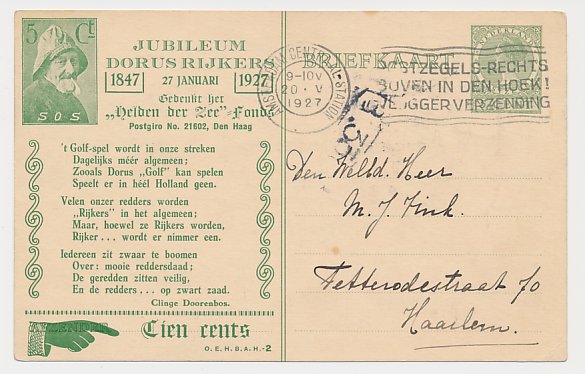 5 Ct
SOS
JUBILEUM
DORUS RIJKERS
1847 27 JANUARI 1927
Gedenkt het
„Helden der Zee"-Fonds
Postgiro No. 21602, Den Haag
't Golf-spel wordt in onze streken
Dagelijks méér algemeen;
Zooals Dorus „Golf" kan spelen
Speelt er in héél Holland geen.
Velen onzer redders worden
„Rijkers" in het algemeen;
Maar, hoewel ze Rijkers worden,
Rijker... wordt er nimmer een.
Iedereen zit zwaar te boomen
Over: mooie reddersdaad;
De geredden zitten veilig,
En de redders... op zwart zaad.
Clinge Doorenbos.
AFZENDER
Tien cents
O. E. H. B. A. H.-2
BRIEFKAART
NEDERLAND
AMSTERDAM CENTRAAL-STATION
9-10V
20 · V
1927
POSTZEGELS-RECHTS
BOVEN IN DEN HOEK!
VLUGGER VERZENDING
Den Weled. Heer
M. J. Fink.
Fetterodestraat 70
Haarlem.